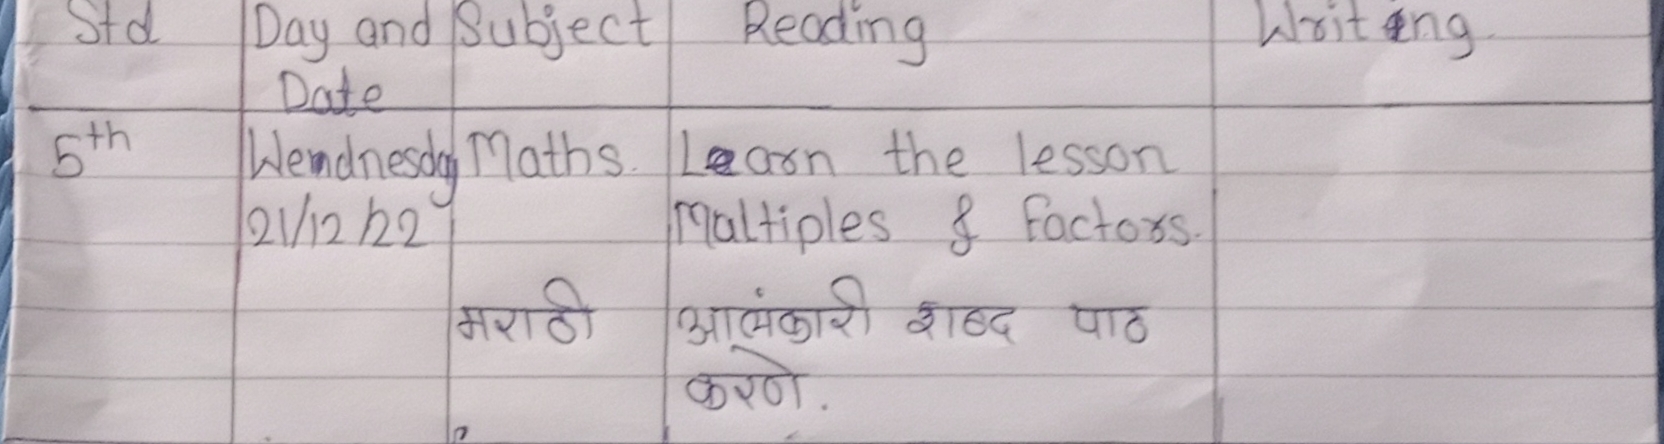 Std Day and Subject Reading Writing
Date
5th Wendnesday Maths. Learn the lesson
21/12/22 Maltiples & Factors.
मराठी आलंकारी शब्द पाठ
करणे.